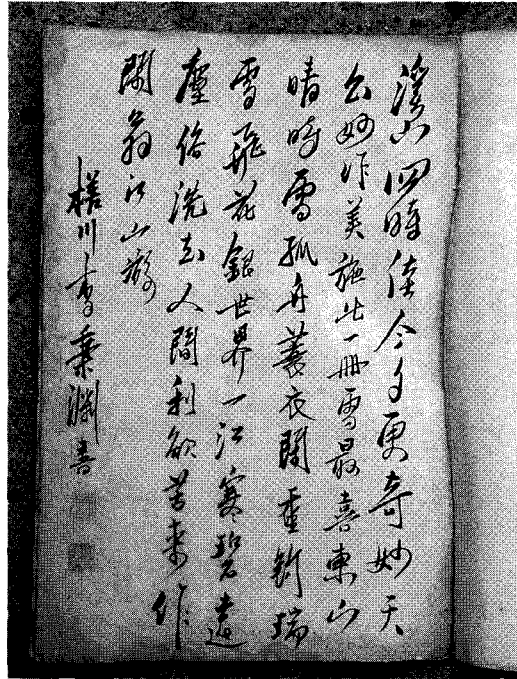 溪山四時佳今夕更奇妙天
公妙作美施此一冊雪最喜東山
晴時雪孤舟蓑衣閑垂釣瑞
雪飛花銀世界一江寒碧遠
塵俗洗去人間利欲苦來作
閑翁江山游
樵川李秉淵書